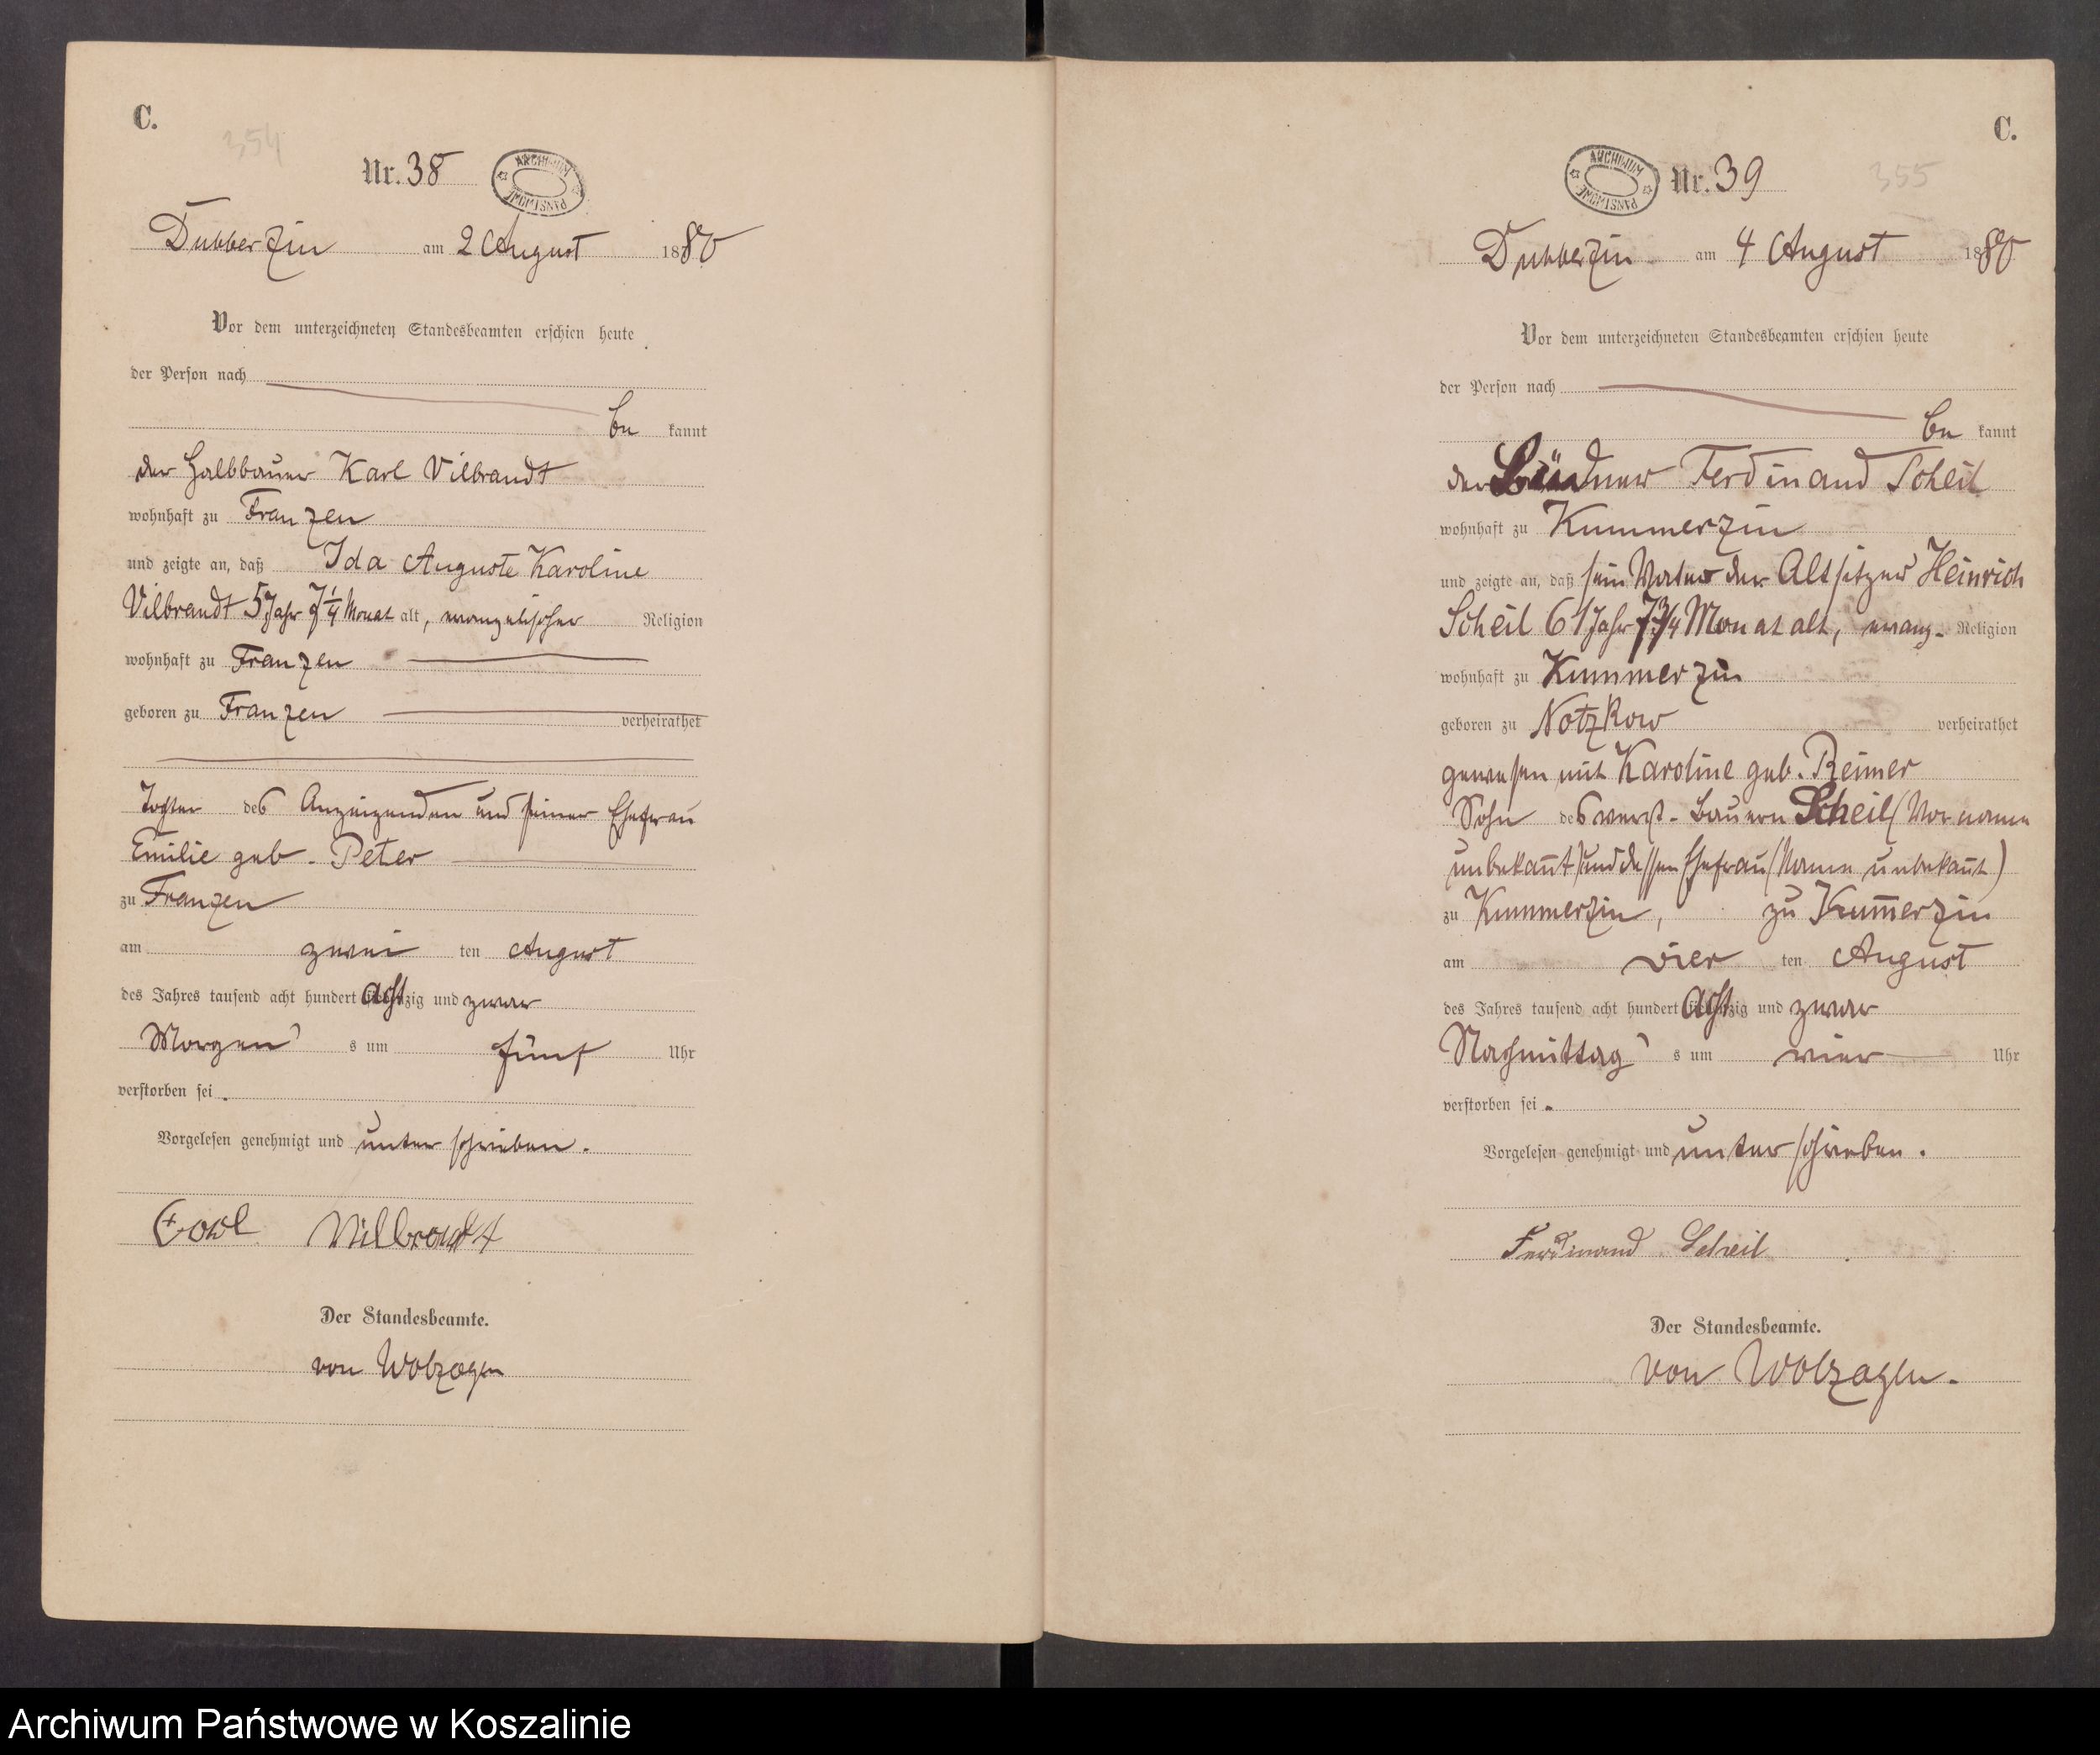 C.
354
Nr. 38
ARCHIWUM PAŃSTWOWE
Dubberzin am 2 August 1880
Vor dem unterzeichneten Standesbeamten erschien heute
der Person nach
be kannt
der Halbbauer Karl Vilbrandt
wohnhaft zu Franzen
und zeigte an, daß Ida Auguste Karoline
Vilbrandt 5 Jahr 7 1/4 Monat alt, evangelischer Religion
wohnhaft zu Franzen
geboren zu Franzen verheirathet
Tochter des Anzeigenden und seiner Ehefrau
Emilie geb. Peter
zu Franzen
am zwei ten August
des Jahres tausend acht hundert achtzig und zwar
Morgen s um fünf Uhr
verstorben sei.
Vorgelesen genehmigt und unterschrieben.
Carl Vilbrandt
Der Standesbeamte.
von Wolzogen
C.
ARCHIWUM PAŃSTWOWE
Nr. 39
355
Dubberzin am 4 August 1880
Vor dem unterzeichneten Standesbeamten erschien heute
der Person nach
be kannt
der Büdner Ferdinand Scheil
wohnhaft zu Kummerzin
und zeigte an, daß sein Vater der Altsitzer Heinrich
Scheil 61 Jahr 7 3/4 Monat alt, evang. Religion
wohnhaft zu Kummerzin
geboren zu Notzkow verheirathet
gewesen mit Karoline geb. Reimer
Sohn des verst. Bauern Scheil (Vorname
unbekannt) und dessen Ehefrau (Name unbekannt)
zu Kummerzin, zu Kum̅erzin
am vier ten August
des Jahres tausend acht hundert achtzig und zwar
Nachmittag s um vier Uhr
verstorben sei.
Vorgelesen genehmigt und unterschrieben.
Ferdinand Scheil
Der Standesbeamte.
von Wolzogen.
Archiwum Państwowe w Koszalinie